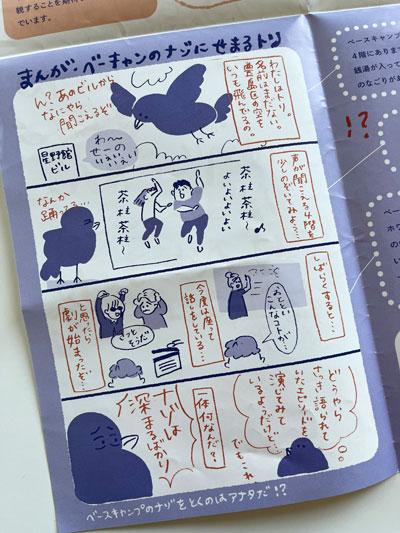 観することを期待
でいます。
まんが：ベーキャンのナゾにせまるトリ
わたしはトリ。
名前はまだない。
豊島区の空を
いつも飛んでるの。
ん？あのビルから
なにやら
聞こえるぞ
わ〜
せーの
いえい
星野館
ビル
声が聞こえた4階を
少しのぞいてみよう…
茶柱茶柱〜
よいよいよいよい
茶柱茶柱〜
なんか
踊ってる…
しばらくすると…
こんなコトが…
今度は座って
話をしている…
きっと
そうだ
と思ったら
劇が始まったぞ…
どうやら
さっき語られて
いたエピソードを
演じてみて
いるようだけど…
でもこれ
一体何なんだ？！
ナゾは
深まるばかり
ベースキャンプのナゾをとくのはアナタだ！？
ベースキャンプ
4階にありま
銭湯が入って
のなごりがあ
！？
ベー
ホワ